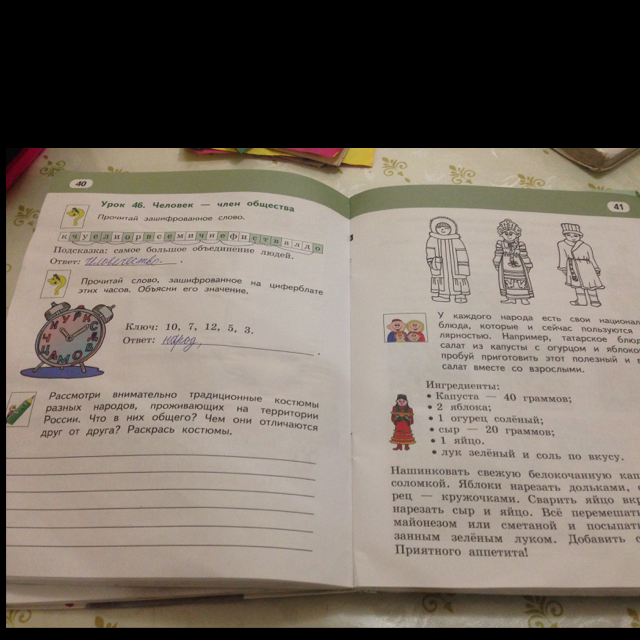 40
Урок 46. Человек — член общества
Прочитай зашифрованное слово.
Подсказка: самое большое объединение людей.
Ответ: человечество.
Прочитай слово, зашифрованное на циферблате
этих часов. Объясни его значение.
Ключ: 10, 7, 12, 5, 3.
Ответ: народ,
Рассмотри внимательно традиционные костюмы
разных народов, проживающих на территории
России. Что в них общего? Чем они отличаются
друг от друга? Раскрась костюмы.
41
У каждого народа есть свои
блюда, которые и сейчас пользуются
Например, татарское
салат из капусты с огурцом и
приготовить этот полезный и
салат вместе со взрослыми.
Ингредиенты:
• Капуста — 40 граммов;
• 2 яблока;
• 1 огурец солёный;
• сыр — 20 граммов;
• 1 яйцо.
• лук зелёный и соль по вкусу.
Нашинковать свежую белокочанную
соломкой. Яблоки нарезать дольками,
рец — кружочками. Сварить яйцо
нарезать сыр и яйцо. Всё
майонезом или сметаной и
занным зелёным луком. Добавить
Приятного аппетита!